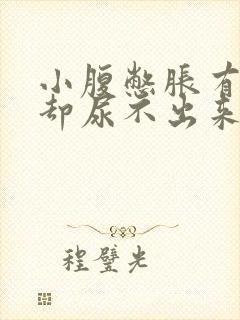 小腹憋胀有
却尿不出来
程璧光